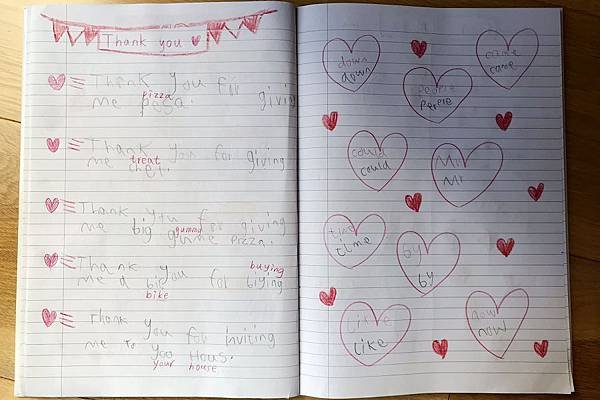 Thank you
Thank you for giving
pizza
me
Thank you for giving
treat
me chet.
Thank you f
me big for giving
gummy
gumme pizza.
Thank you for
buying
me a biying
bike
Thank you for inviting
me to yoo Hous.
your house
down
down
came
came
people
Perple
could
could
Mr
Mr
time
time
by
by
Like
Like
now
now